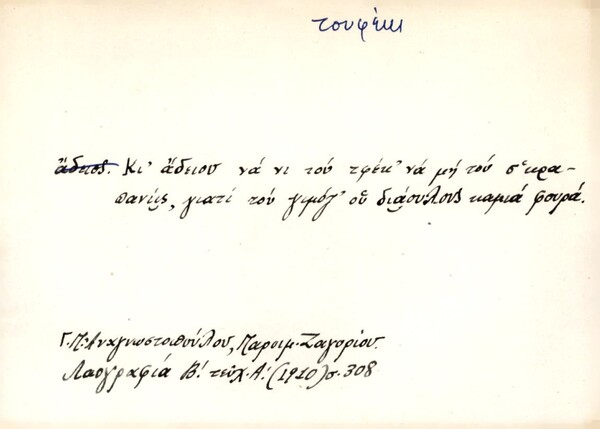 τουφέκι
ἄδειος. Κι' ἄδειου νά νι τού τφέκ' νά μή τού σ'κρα-
πανίζς, γιατί τού γιμόζ' οὗ διάουλους καμιά φουρά.
Γ. Π. Ἀναγνωστοπούλου, Παροιμ. Ζαγορίου.
Λαογραφία Β'. τεῦχ. Α'. (1910) σ. 308